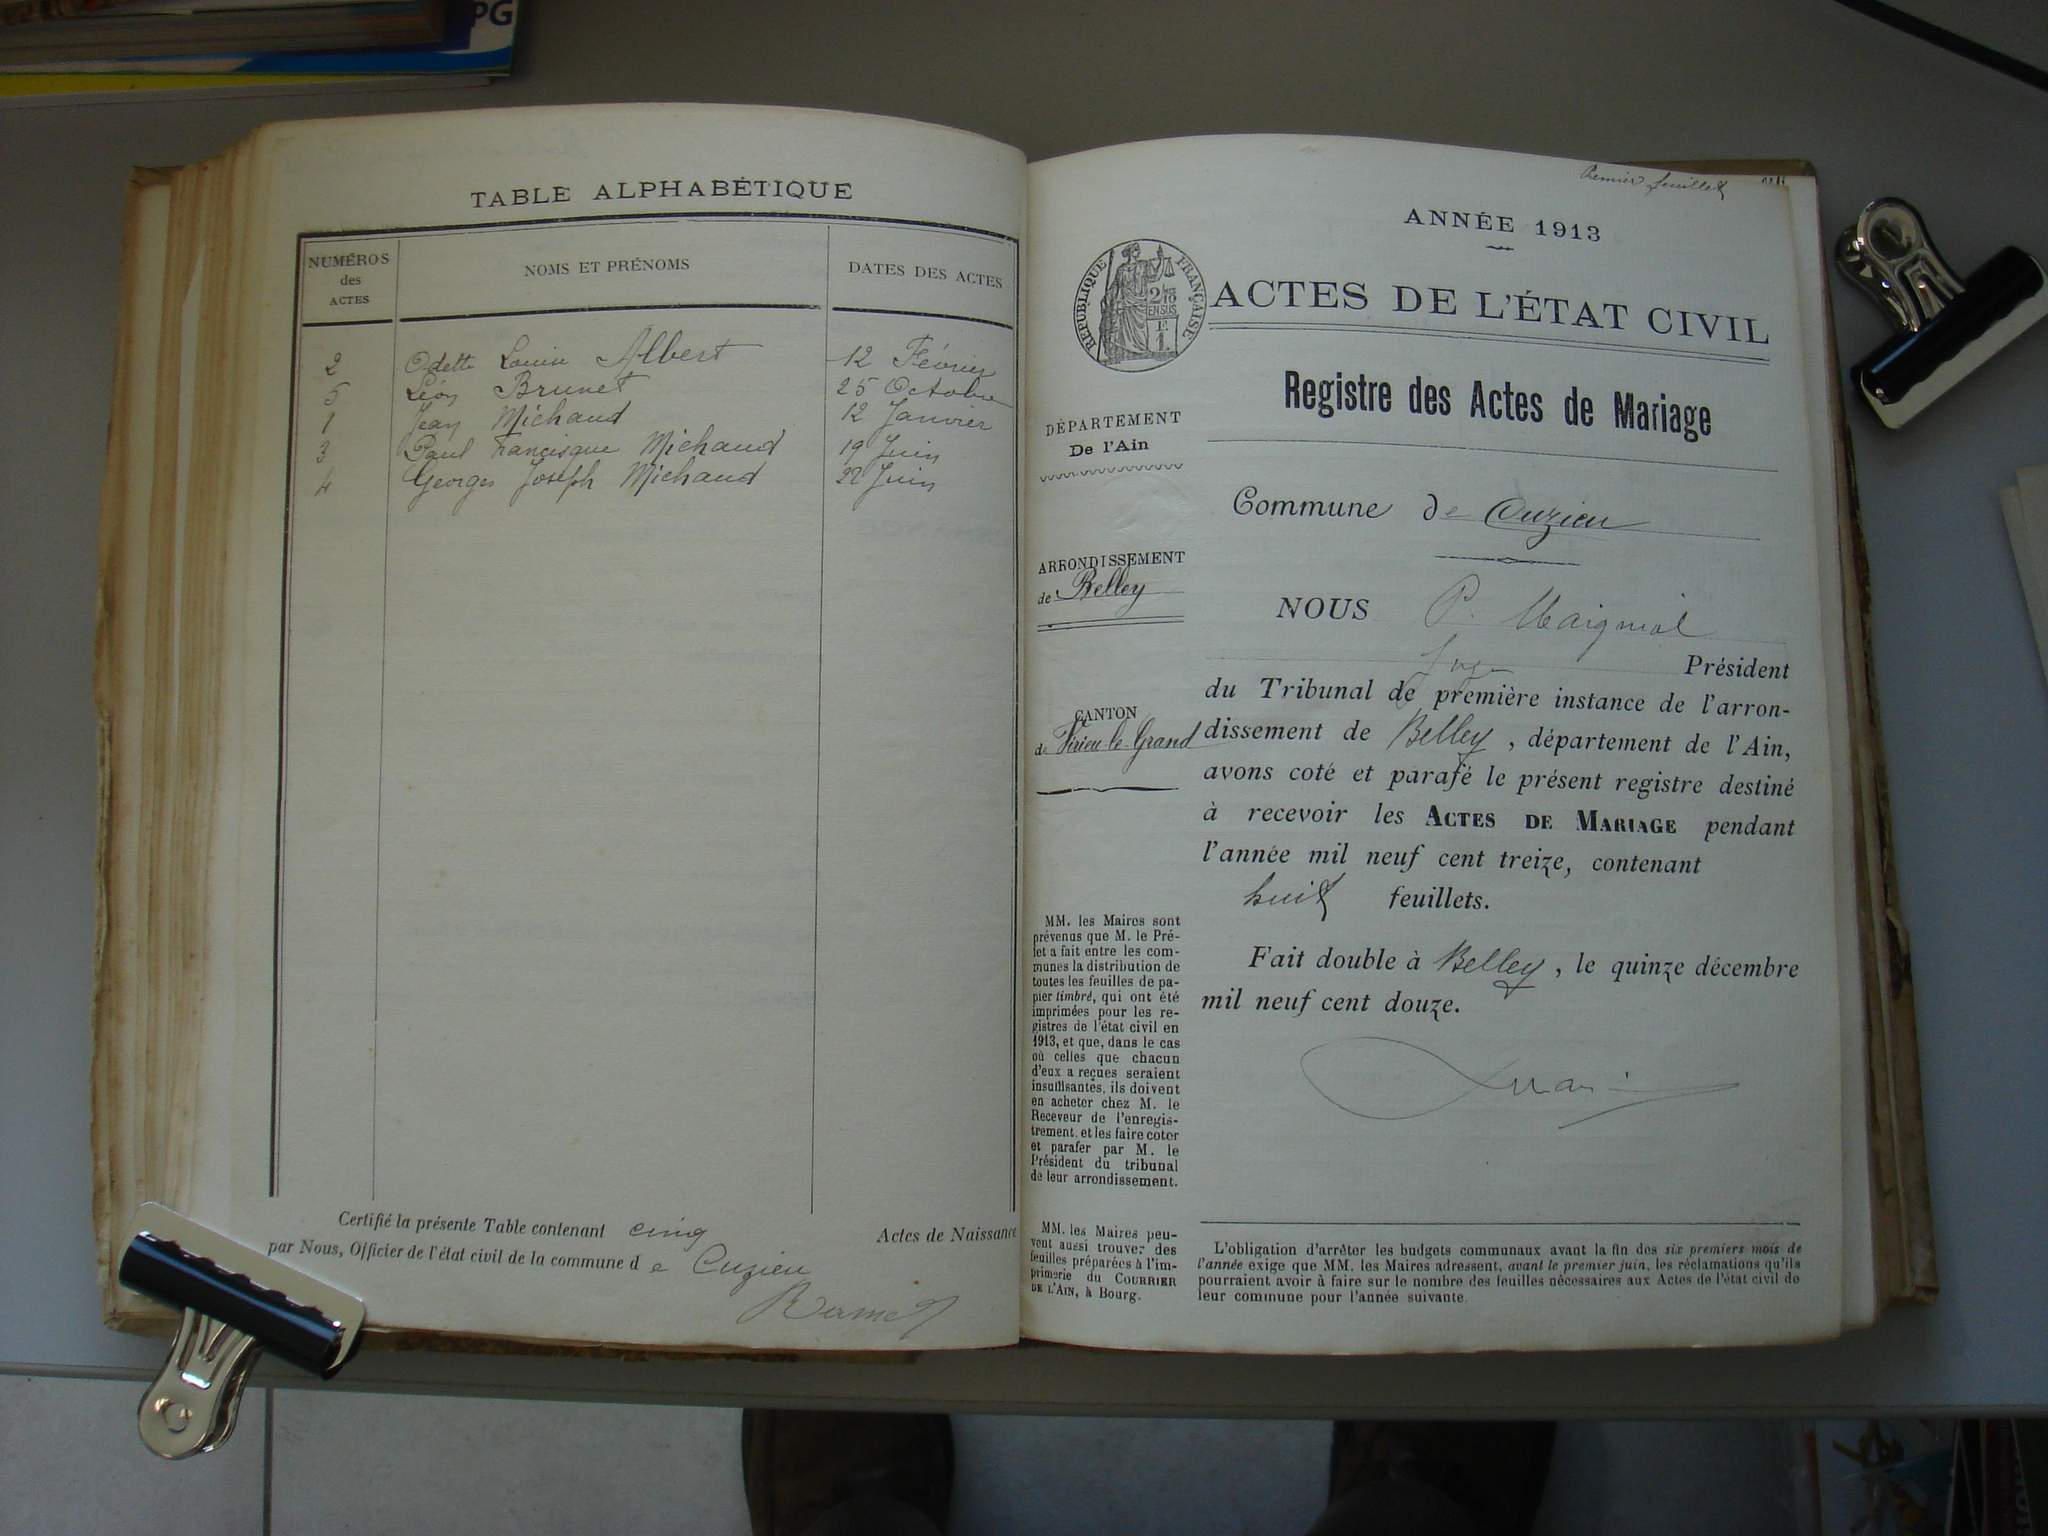 PG
TABLE ALPHABÉTIQUE
NUMÉROS des ACTES
NOMS ET PRÉNOMS
DATES DES ACTES
2 Odette Louise Albert 12 Février
5 Léon Brunet 25 Octobre
1 Jean Michaud 12 Janvier
3 Paul Francisque Michaud 19 Juin
4 Georges Joseph Michaud 22 Juin
Certifié la présente Table contenant cinq Actes de Naissance
par Nous, Officier de l'état civil de la commune de Cuzieu
Premier feuillet
ANNÉE 1913
RÉPUBLIQUE FRANÇAISE
ACTES DE L'ÉTAT CIVIL
Registre des Actes de Mariage
DÉPARTEMENT
De l'Ain
ARRONDISSEMENT
de Belley
CANTON
de Virieu-le-Grand
MM. les Maires sont
prévenus que M. le Pré-
fet a fait entre les com-
munes la distribution de
toutes les feuilles de pa-
pier timbré, qui ont été
imprimées pour les re-
gistres de l'état civil en
1913, et que, dans le cas
où celles que chacun
d'eux a reçues seraient
insuffisantes, ils doivent
en acheter chez M. le
Receveur de l'enregis-
trement, et les faire coter
et parafer par M. le
Président du tribunal
de leur arrondissement.
MM. les Maires peu-
vent aussi trouver des
feuilles préparées à l'im-
primerie du COURRIER
DE L'AIN, à Bourg.
Commune de Cuzieu
NOUS P. Maigniol
Juge Président
du Tribunal de première instance de l'arron-
dissement de Belley, département de l'Ain,
avons coté et parafé le présent registre destiné
à recevoir les ACTES DE MARIAGE pendant
l'année mil neuf cent treize, contenant
huit feuillets.
Fait double à Belley, le quinze décembre
mil neuf cent douze.
L'obligation d'arrêter les budgets communaux avant la fin des six premiers mois de
l'année exige que MM. les Maires adressent, avant le premier juin, les réclamations qu'ils
pourraient avoir à faire sur le nombre des feuilles nécessaires aux Actes de l'état civil de
leur commune pour l'année suivante.